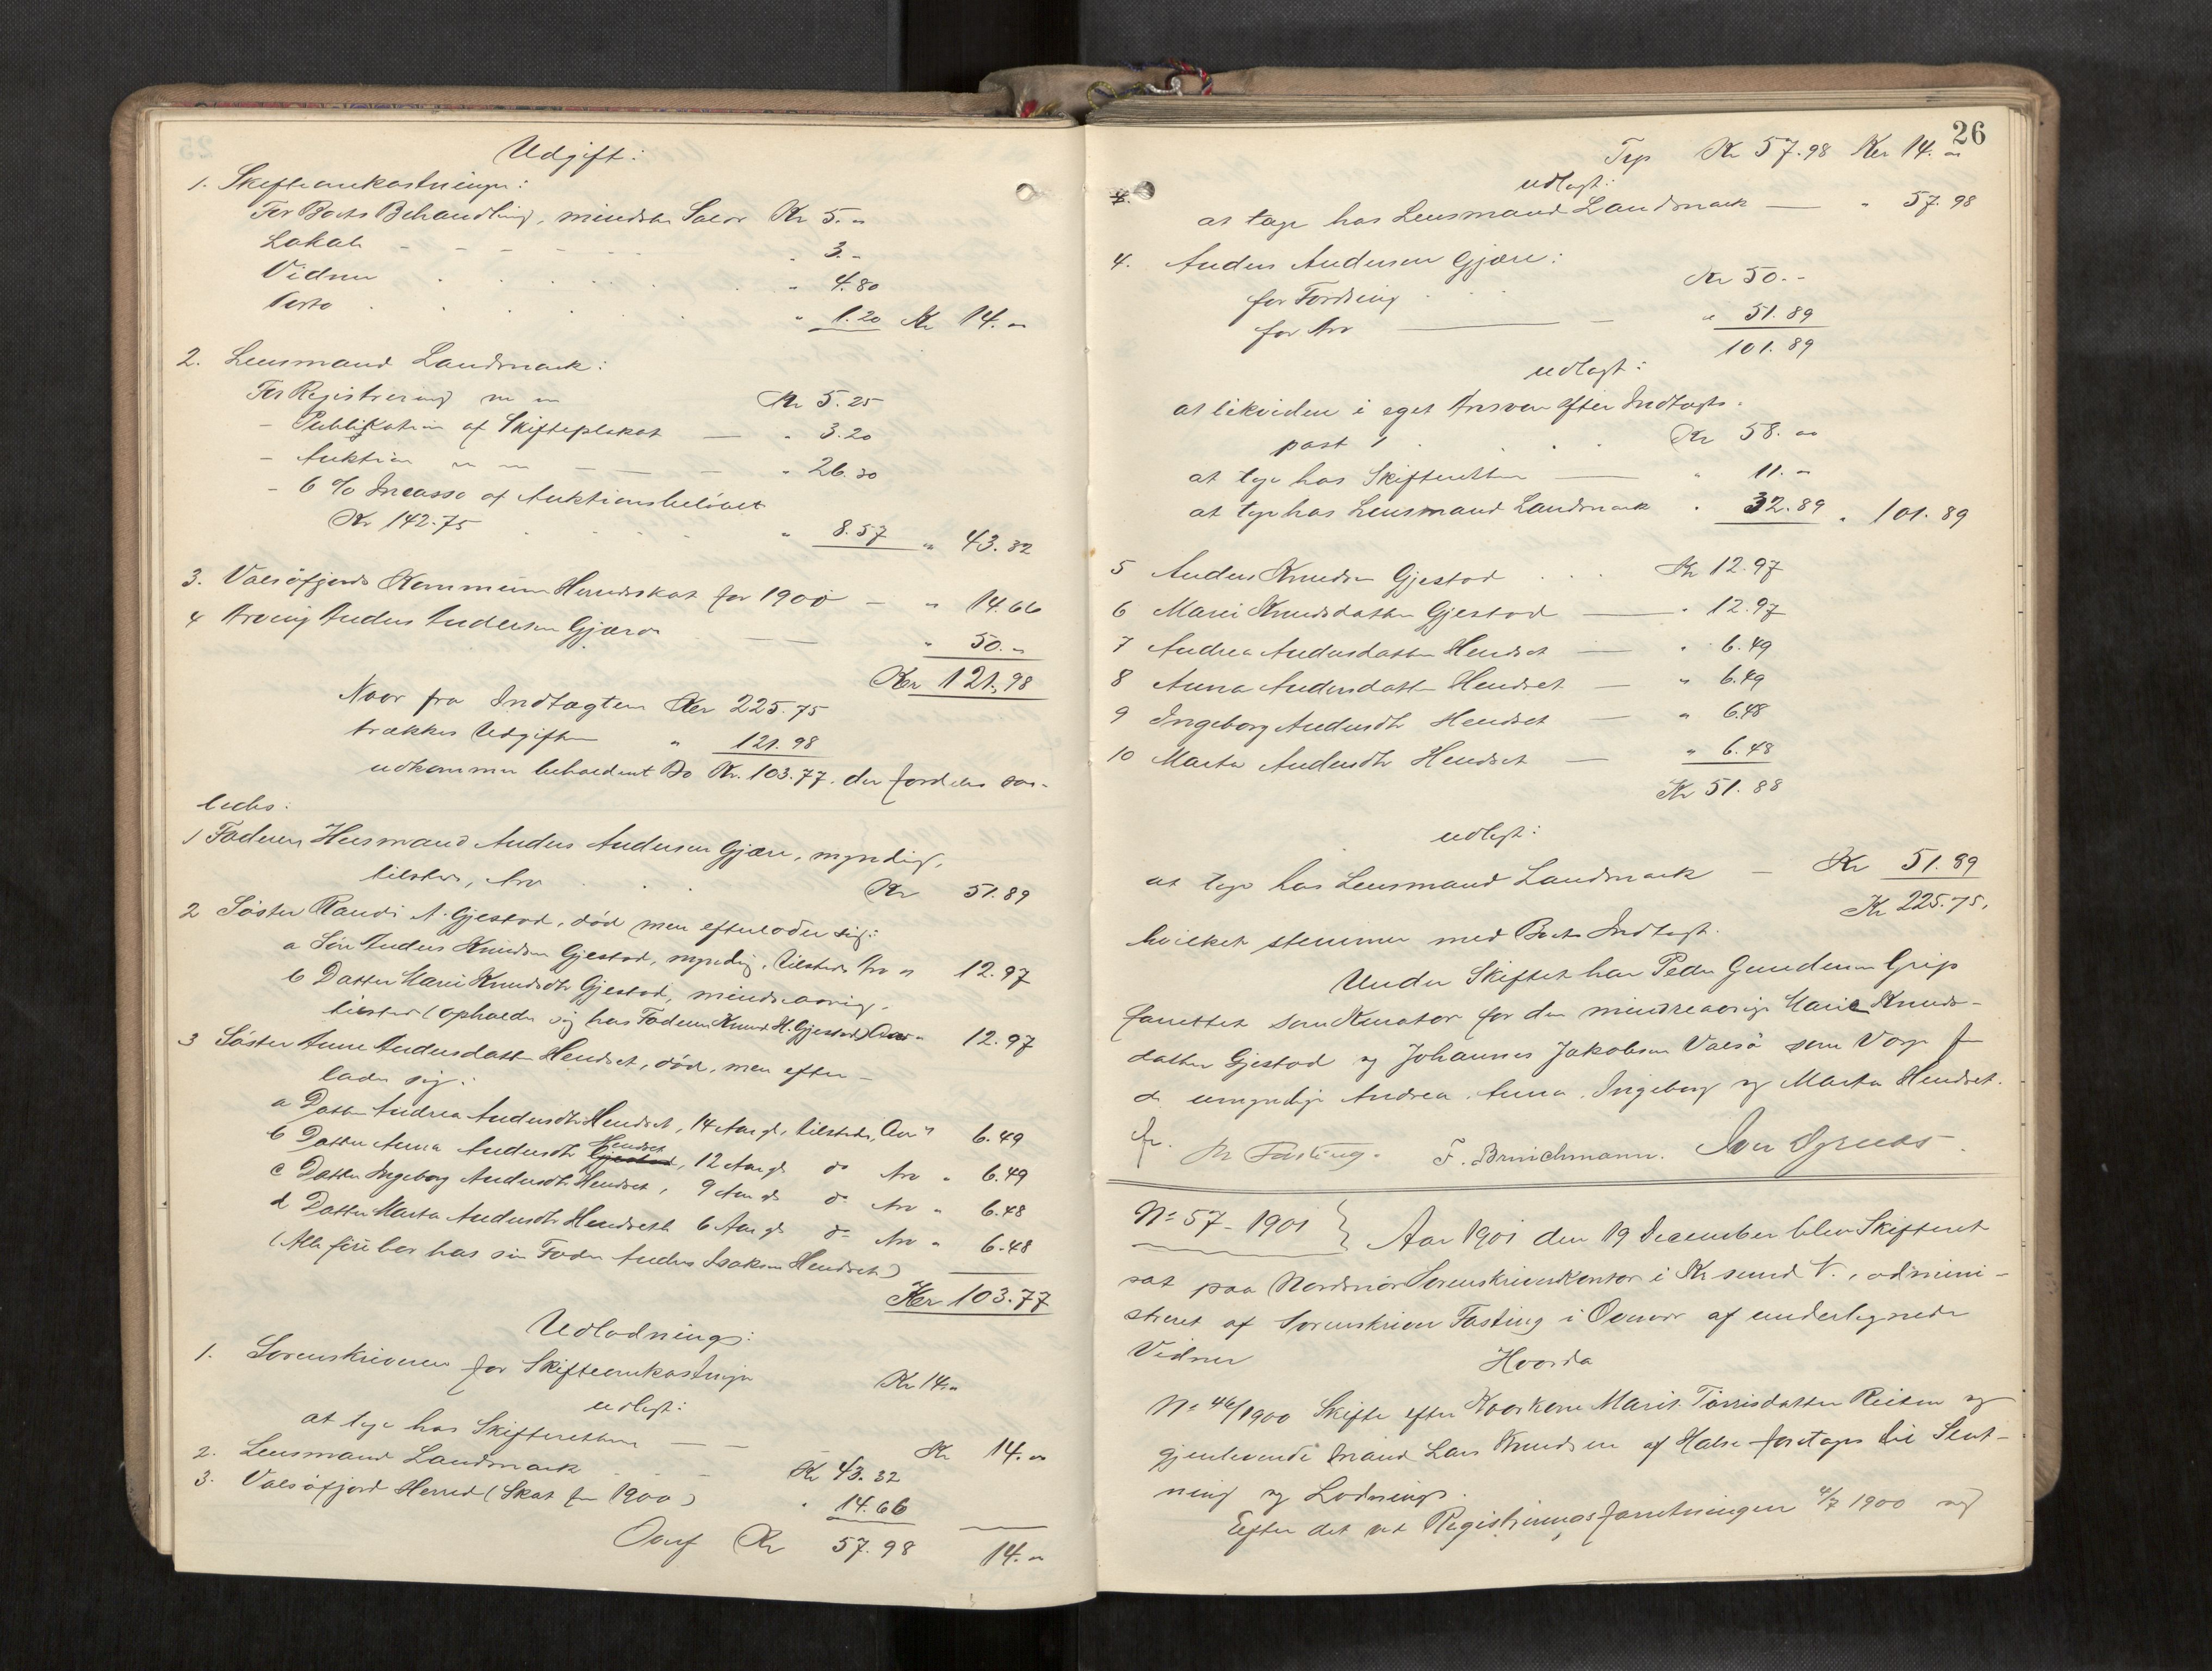 Udgift:
1. Skifteomkostninger:
For Boets Behandling, mindste Salær Kr 5.„
Lokale „ 3.„
Vidner „ 4.80
Porto „ 1.20 Kr 14.„
2. Lensmand Landmark:
For Registrering m m Kr 5.25
- Publikation af Skifteplakat — „ 3.20
- Auktion m m — — — „ 26.30
- 6 % Incasso af Auktionsbeløbet
Kr 142.75 „ 8.57 „ 43.32
3. Valsøfjords Kommune Herredskat for 1900 — „ 14.66
4 Arving Anders Andersen Gjære — „ 50.„
Kr 121.98
Naar fra Indtægten Kr 225.75
trækkes Udgiften „ 121.98
udkommer beholdent Bo Kr. 103.77. der fordeles saa-
ledes:
1 Faderen Husmand Anders Andersen Gjære, myndig,
tilstede, Arv Kr 51.89
2 Søster Randi A. Gjestad, død men efterlader sig:
a Søn Anders Knudsen Gjestad, myndig, tilstede Arv „ 12.97
b Datter Marie Knudsdtr Gjestad, mindreaarig,
tilstede (opholder sig hos Faderen Knud H. Gjestad) Arv „ 12.97
3 Søster Anne Andersdatter Hendset, død, men efter-
lader sig:
a Datter Andrea Andersdtr Hendset, 14 Aar gl, tilstede, Arv „ 6.49
b Datter Anna Andersdtr Gjestad Hendset, 12 Aar gl do Arv „ 6.49
c Datter Ingeborg Andersdtr Hendset, 9 Aar gl do Arv „ 6.48
d Datter Marta Andersdtr Hendseth 6 Aar gl do Arv „ 6.48
(Alle fire bor hos sin Fader Anders Isaksen Hendset)
Kr 103.77
Udlodning:
1. Sorenskriveren for Skifteomkostninger Kr 14.„
udlagt:
at tage hos Skifteretten — — Kr 14.„
2. Lensmand Landmark Kr 43.32
3. Valsøfjord Herred (Skat for 1900) „ 14.66
Kr 57.98 14.„
26
Trp Kr 57.98 Kr 14.„
udlagt:
at tage hos Lensmand Landmark — „ 57.98
4. Anders Andersen Gjære:
for Fordring Kr 50.-
for Arv — „ 51.89
101.89
udlagt:
at likvidere i eget Ansvar efter Indtægts-
post 1 Kr 58.„
at tage hos Skifteretten — „ 11.„
at tage hos Lensmand Landmark „ 32.89 „ 101.89
5 Anders Knudsen Gjestad Kr 12.97
6 Marie Knudsdatter Gjestad — „ 12.97
7 Andrea Andersdatter Hendset — „ 6.49
8 Anna Andersdatter Hendset — „ 6.49
9 Ingeborg Andersdtr Hendset — „ 6.48
10 Marta Andersdtr Hendset — „ 6.48
Kr 51.88
udlagt:
at tage hos Lensmand Landmark — Kr 51.89
Kr 225.75,
hvilket stemmer med Boets Indtægt.
Under Skiftet har Peder Gundersen Grip
forrettet som Kurator for den mindreaarige Marie Knuds-
datter Gjestad og Johannes Jakobsen Valsø som Verge for
de umyndige Andrea, Anna, Ingeborg og Marta Hendset.
Fr. M Fasting. F. Brinchmann.
No 57-1901 } Aar 1901 den 19 December blev Skifteret
sat paa Nordmør Sorenskriverkontor i Kr sund N., admini-
streret af Sorenskriver Fasting i Overvær af undertegnede
Vidner Hvorda
No 46/1900 Skifte efter Kaarkone Marit Tørrisdatter Reiten og
gjenlevende Mand Lars Knudsen af Halse foretages til Slut-
ning og Lodning.
Efter det ved Registreringsforretningen 4/7 1900 og